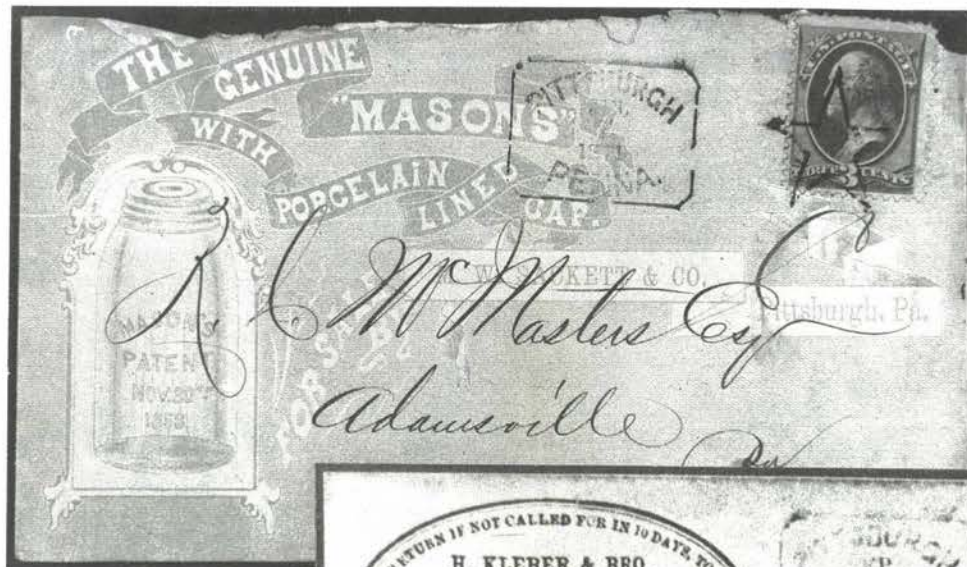 THE GENUINE
"MASONS"
WITH
PORCELAIN
LINED
CAP.
PITTSBURGH
PENNA.
U.S. POSTAGE
3 CENTS
MASON'S
PATENT
NOV. 30TH
1858
FOR SALE
BY
W. SACKETT & CO.
Pittsburgh, Pa.
R C McMasters Esq
Adamsville
Pa
RETURN IF NOT CALLED FOR IN 10 DAYS, TO
H. KLEBER & BRO.